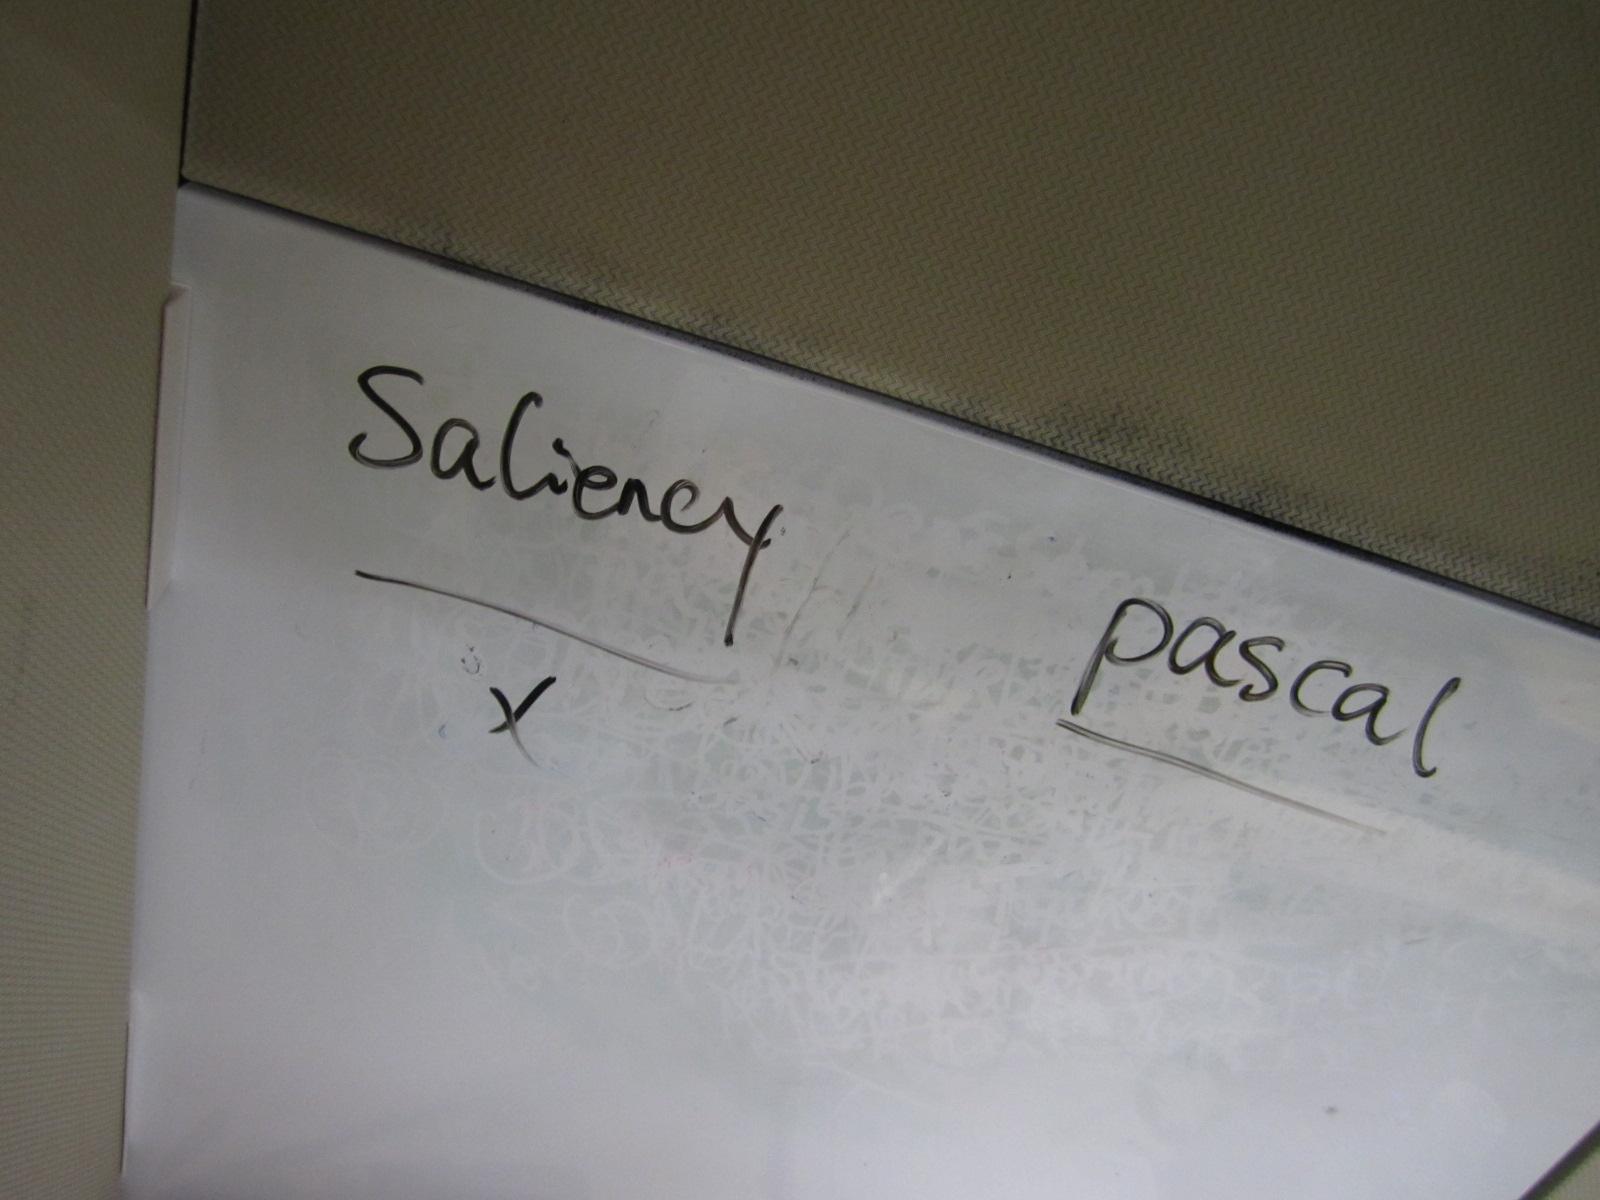 Saliency
x
pascal